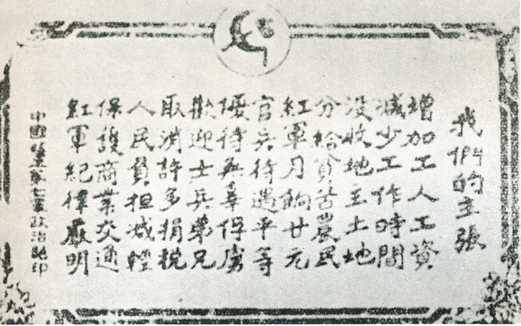 我們的主張
增加工人工資
減少工作時間
沒收地主土地
分給貧苦農民
紅軍月餉廿元
官兵待遇平等
優待無辜俘虜
歡迎士兵弟兄
取消許多捐稅
人民負担減輕
保護商業交通
紅軍紀律嚴明
中國軍政治部印